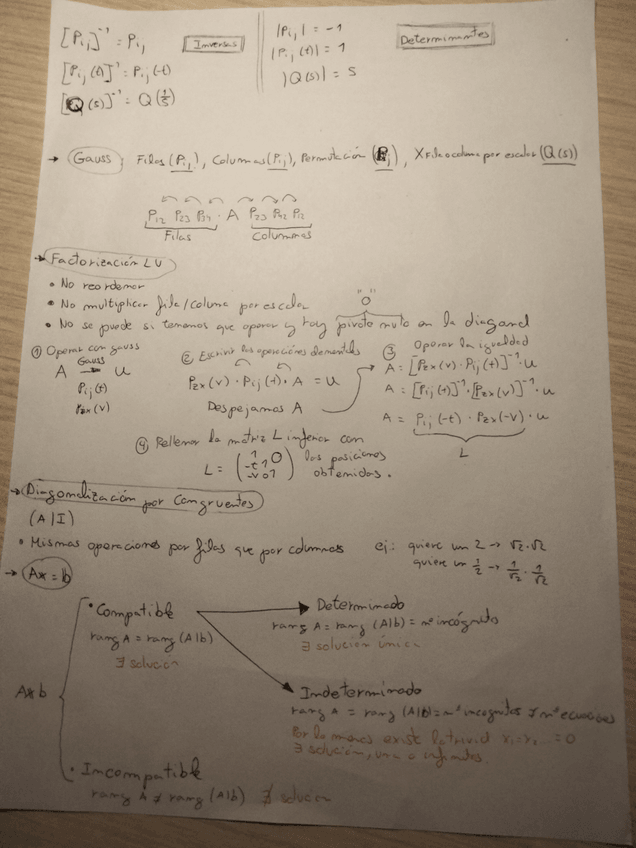 [Pij]⁻¹ = Pij
Inversas
[Pij(t)]⁻¹ = Pij(-t)
[Q(s)]⁻¹ = Q(1/s)
|Pij| = -1
Determinantes
|Pij(t)| = 1
|Q(s)| = s
→ Gauss: Filas (Pij), Columnas (Pij), Permutación (Pij), X Fila o columna por escalar (Q(s))
P12 P23 P34 · A P23 P42 P12
Filas Columnas
→ Factorización LU
• No reordenar
• No multiplicar fila/columna por escalar
"0"
• No se puede si tenemos que operar y hay pivote nulo en la diagonal
① Operar con gauss
A Gauss → U
Pij(t)
Pzx(v)
② Escribir las operaciones elementales
Pzx(v) · Pij(t) · A = U
Despejamos A
③ Operar la igualdad
A = [Pzx(v) · Pij(t)]⁻¹ · U
A = [Pij(t)]⁻¹ · [Pzx(v)]⁻¹ · U
A = Pij(-t) · Pzx(-v) · U
L
④ Rellenar la matriz L inferior con
L = (1 0 -t 1 -v 0 1) las posiciones
obtenidas.
→ Diagonalización por Congruentes
(A|I)
• Mismas operaciones por filas que por columnas
ej: quiere un 2 → √2·√2
quiere un 1/2 → 1/√2 · 1/√2
→ Ax = b
Axb
• Compatible
rang A = rang (A|b)
∃ solución
Determinado
rang A = rang (A|b) = nº incógnitas
∃ solución única
Indeterminado
rang A = rang (A|b) = nº incognitas ≠ nº ecuaciones
Por lo menos existe la trivial x₁=x₂ ... = 0
∃ solución, una o infinitas.
• Incompatible
rang A ≠ rang (A|b) ∄ solucion